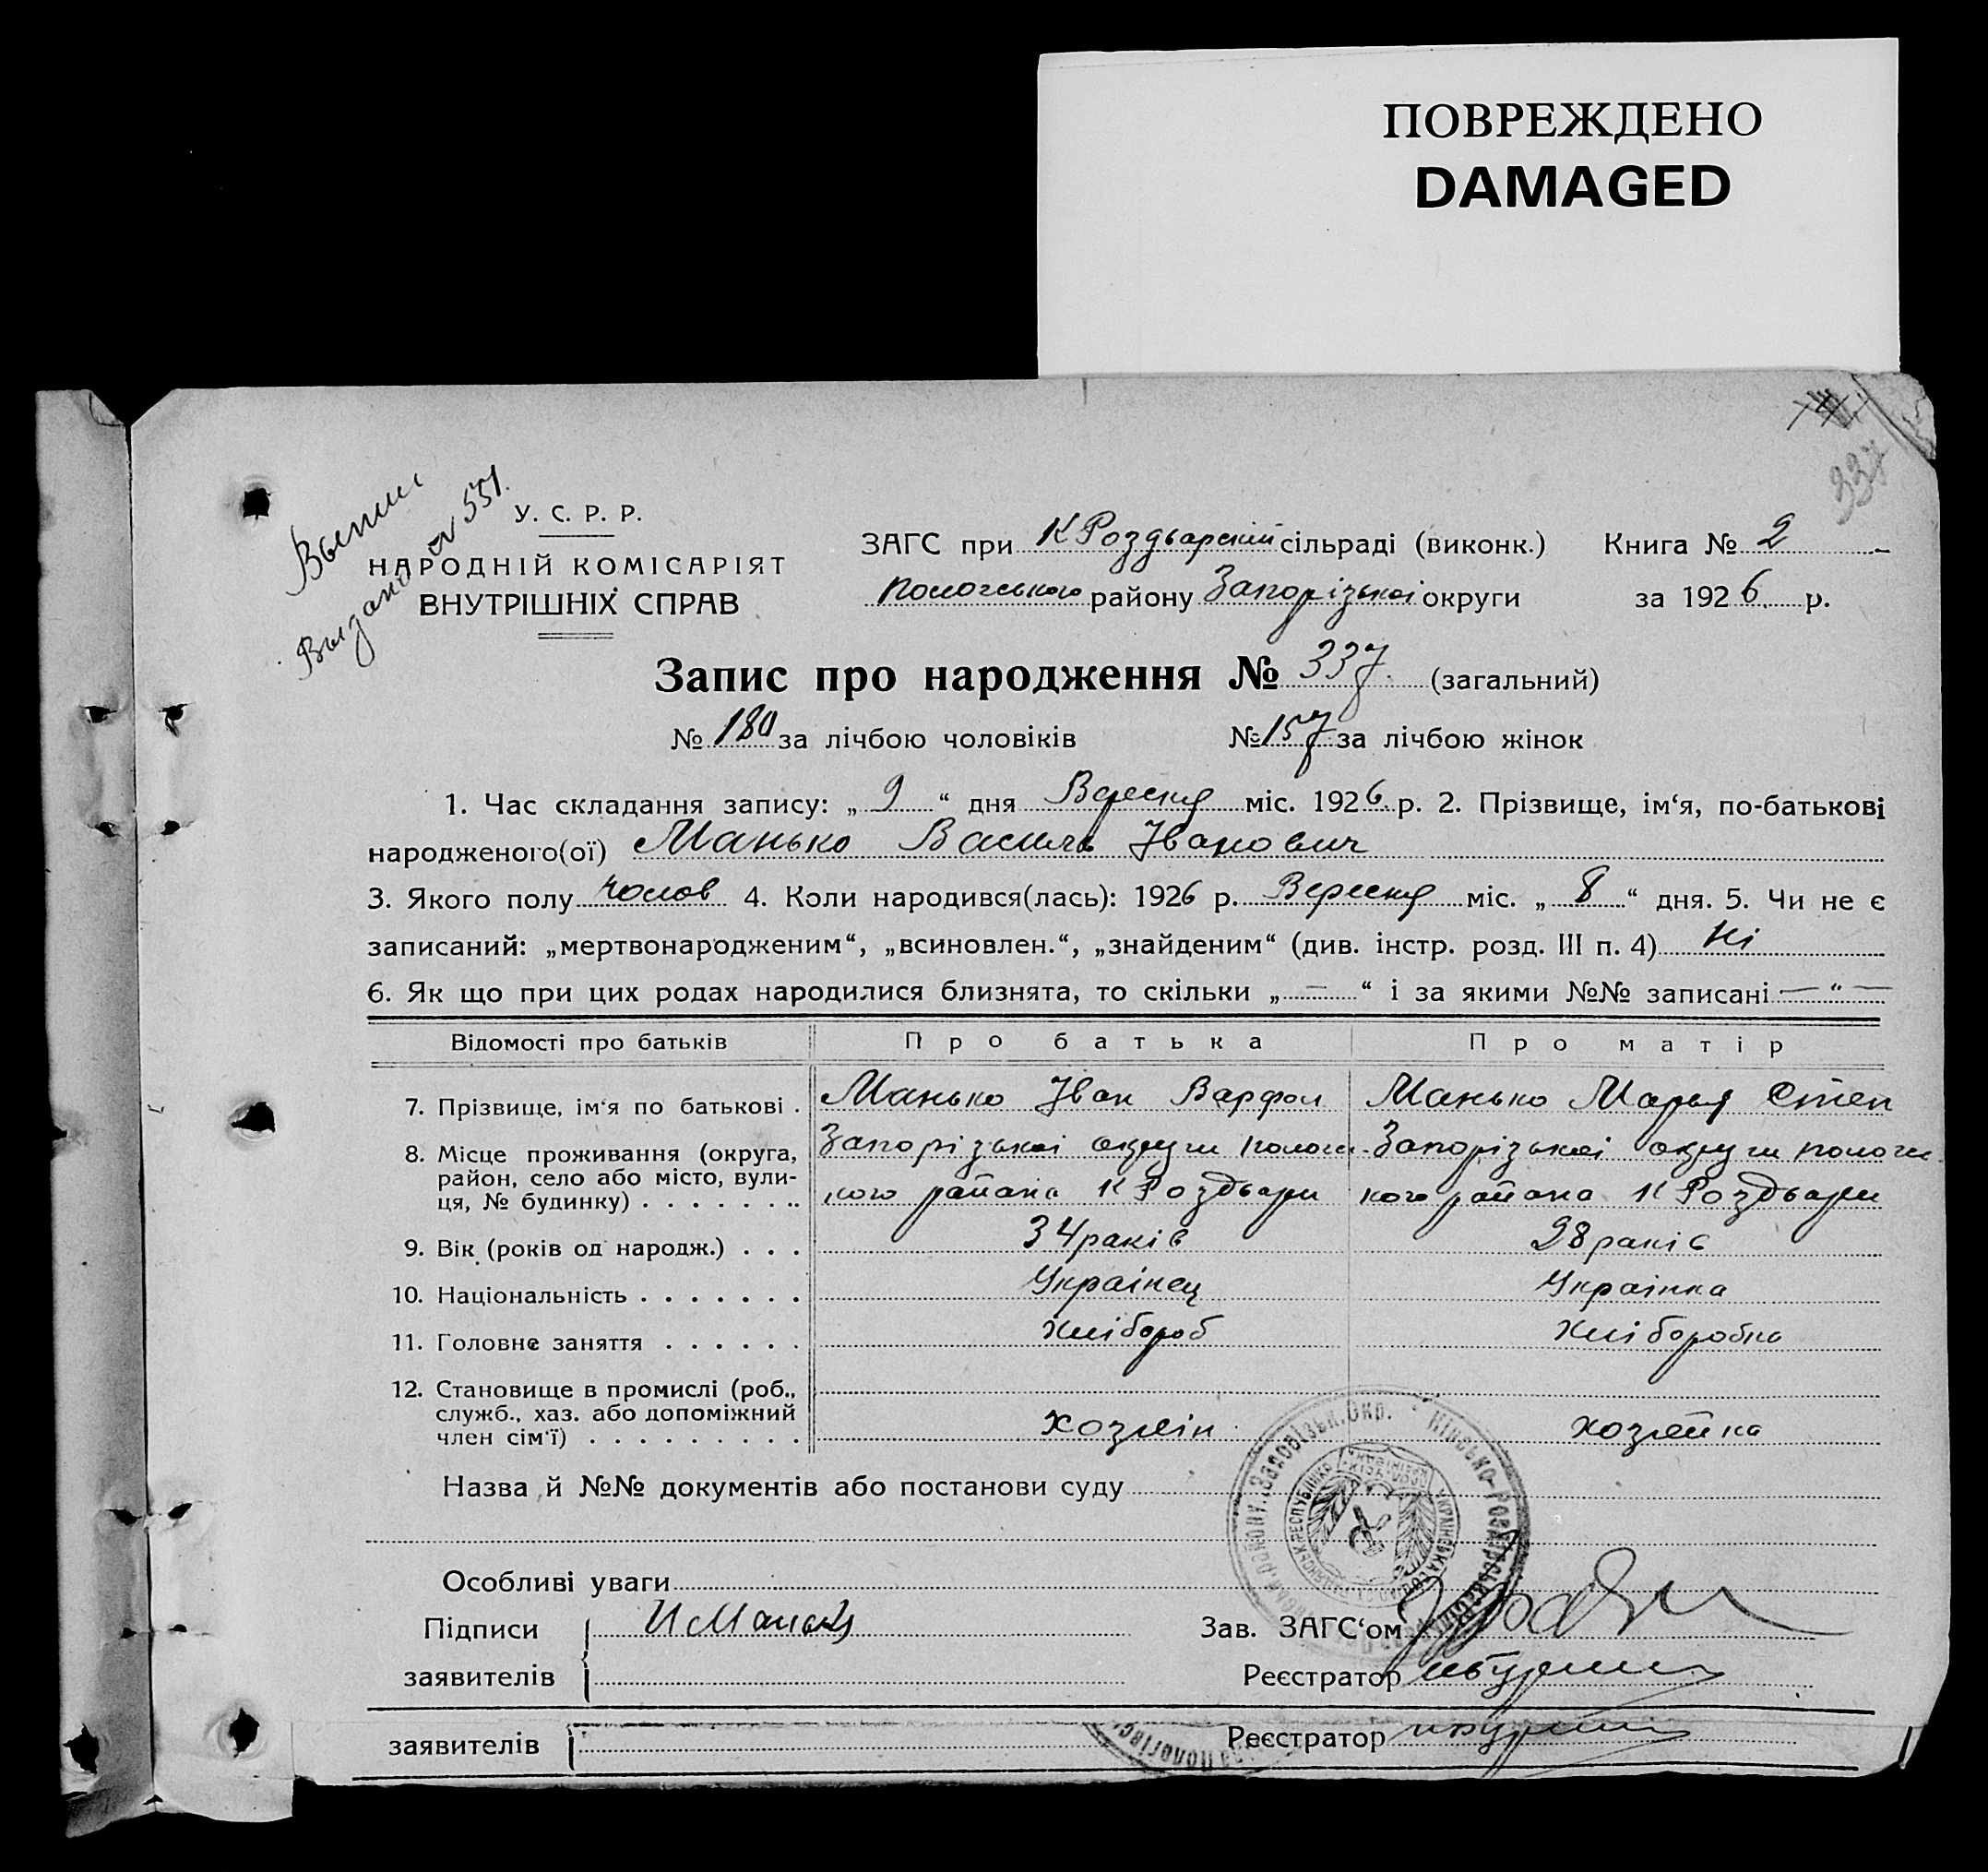 ПОВРЕЖДЕНО
DAMAGED
337
Выдано 551.
У. С. Р. Р.
НАРОДНІЙ КОМІСАРІЯТ
ВНУТРІШНІХ СПРАВ
ЗАГС при К Роздварський сільраді (виконк.) Книга № 2
Пологського району Запорізької округи за 1926 р.
Запис про народження № 337. (загальний)
№ 180 за лічбою чоловіків № 157 за лічбою жінок
1. Час складання запису: „ 9 “ дня Вересня міс. 1926 р. 2. Прізвище, ім‘я, по-батькові
народженого(ої) Манько Василь Іванович
3. Якого полу чолов 4. Коли народився(лась): 1926 р. Вересня міс. „ 8 “ дня. 5. Чи не є
записаний: „мертвонародженим“, „всиновлен.“, „знайденим“ (див. інстр. розд. III п. 4) Ні
6. Як що при цих родах народилися близнята, то скільки „ — “ і за якими №№ записані — “ —
Відомості про батьків Про батька Про матір
7. Прізвище, ім‘я по батькові . Манько Іван Варфол Манько Марья Степ
8. Місце проживання (округа, Запорізької округи Пологи- Запорізької округи Пологи
район, село або місто, вули- кого района К Роздвари кого района К Роздвари
ця, № будинку) . . . . . . . .
9. Вік (років од народж.) . . . 34 раків 28 раків
10. Національність . . . . . . . Українец Українка
11. Головне заняття . . . . . . Хлібороб Хліборобка
12. Становище в промислі (роб.,
служб., хаз. або допоміжний
член сім‘ї) . . . . . . . . . Хозяін Хозяйка
Назва й №№ документів або постанови суду
Особливі уваги
Підписи И Манько Зав. ЗАГС‘ом
заявителів Реєстратор
заявителів Реєстратор